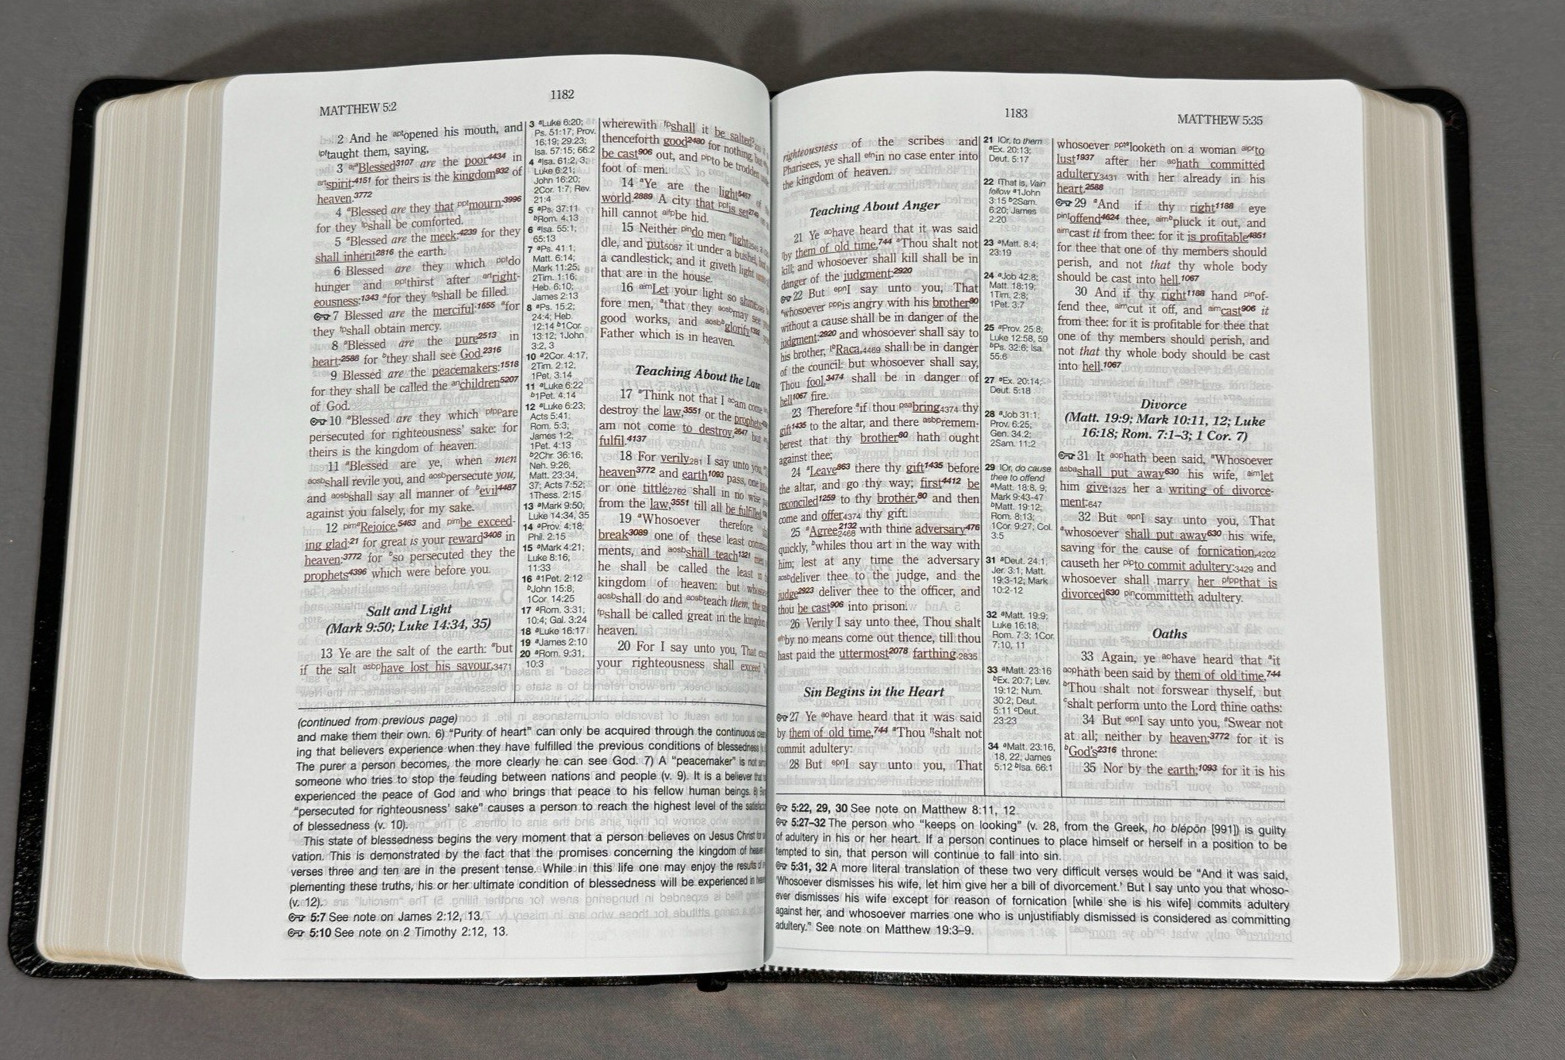 MATTHEW 5:2
1182
2 And he aptopened his mouth, and
iptaught them, saying,
3 aanBlessed3107 are the poor4434 in
anspirit:4151 for theirs is the kingdom932 of
heaven.3772
4 aBlessed are they that pptmourn:3996
for they bshall be comforted.
5 aBlessed are the meek:4239 for they
shall inherit2816 the earth.
6 Blessed are they which pptdo
hunger and pptthirst after anright-
eousness:1343 afor they bshall be filled.
7 Blessed are the merciful:1655 afor
they fpshall obtain mercy.
8 aBlessed are the pure2513 in
heart:2588 for bthey shall see God.2316
9 Blessed are the peacemakers:1518
for they shall be called the anchildren5207
of God.
10 aBlessed are they which pfppare
persecuted for righteousness' sake: for
theirs is the kingdom of heaven.
11 aBlessed are ye, when men
aosbshall revile you, and aosbpersecute you,
and aosbshall say all manner of bevil4487
against you falsely, for my sake.
12 pimaRejoice,5463 and pimbe exceed-
ing glad:21 for great is your reward3408 in
heaven:3772 for bso persecuted they the
prophets4396 which were before you.
Salt and Light
(Mark 9:50; Luke 14:34, 35)
13 Ye are the salt of the earth: abut
if the salt asbphave lost his savour,3471
3 aLuke 6:20;
Ps. 51:17; Prov.
16:19; 29:23;
Isa. 57:15; 66:2
4 aIsa. 61:2, 3;
Luke 6:21;
John 16:20;
2Cor. 1:7; Rev.
21:4
5 aPs. 37:11
bRom. 4:13
6 aIsa. 55:1;
65:13
7 aPs. 41:1;
Matt. 6:14;
Mark 11:25;
2Tim. 1:16;
Heb. 6:10;
James 2:13
8 aPs. 15:2;
24:4; Heb.
12:14 b1Cor.
13:12; 1John
3:2, 3
10 a2Cor. 4:17;
2Tim. 2:12;
1Pet. 3:14
11 aLuke 6:22
b1Pet. 4:14
12 aLuke 6:23;
Acts 5:41;
Rom. 5:3;
James 1:2;
1Pet. 4:13
b2Chr. 36:16;
Neh. 9:26;
Matt. 23:34,
37; Acts 7:52;
1Thess. 2:15
13 aMark 9:50;
Luke 14:34, 35
14 aProv. 4:18;
Phil. 2:15
15 aMark 4:21;
Luke 8:16;
11:33
16 a1Pet. 2:12
bJohn 15:8;
1Cor. 14:25
17 aRom. 3:31;
10:4; Gal. 3:24
18 aLuke 16:17
19 aJames 2:10
20 aRom. 9:31;
10:3
wherewith fpshall it be salted?
thenceforth good2480 for nothing, but
be cast906 out, and pipto be trodden
foot of men.
14 aYe are the light5457
world.2889 A city that pptis set2749
hill cannot aipbe hid.
15 Neither pindo men alight
dle, and put5087 it under a bushel, but
a candlestick; and it giveth light
that are in the house.
16 aimLet your light so shine
fore men, athat they aosbmay see
good works, and aosbbglorify1392
Father which is in heaven.
Teaching About the Law
17 aThink not that I aoam come
destroy the law,3551 or the prophets:
am not come to destroy,2647 but
fulfil.4137
18 For verily281 I say unto you,
heaven3772 and earth1093 pass, one
or one tittle2762 shall in no wise
from the law,3551 till all be fulfilled
19 aWhosoever therefore
break3089 one of these least
ments, and aosbshall teach1321
he shall be called the least in
kingdom of heaven: but whoso
aosbshall do and aosbteach them, the
fpshall be called great in the kingdom
heaven.
20 For I say unto you, That
your righteousness shall exceed
(continued from previous page)
and make them their own. 6) "Purity of heart" can only be acquired through the continuous
ing that believers experience when they have fulfilled the previous conditions of blessedness
The purer a person becomes, the more clearly he can see God. 7) A "peacemaker" is not
someone who tries to stop the feuding between nations and people (v. 9). It is a believer
experienced the peace of God and who brings that peace to his fellow human beings. 8)
"persecuted for righteousness' sake" causes a person to reach the highest level of the
of blessedness (v. 10).
This state of blessedness begins the very moment that a person believes on Jesus Christ
vation. This is demonstrated by the fact that the promises concerning the kingdom of heaven
verses three and ten are in the present tense. While in this life one may enjoy the results of
plementing these truths, his or her ultimate condition of blessedness will be experienced in
(v. 12).
5:7 See note on James 2:12, 13.
5:10 See note on 2 Timothy 2:12, 13.
1183
MATTHEW 5:35
righteousness of the scribes and
Pharisees, ye shall efnin no case enter into
the kingdom of heaven.
Teaching About Anger
21 Ye aohave heard that it was said
by them of old time,744 aThou shalt not
kill; and whosoever shall kill shall be in
danger of the judgment:2920
22 But epnI say unto you, That
awhosoever pppis angry with his brother80
without a cause shall be in danger of the
judgment:2920 and whosoever shall say to
his brother, bRaca,4469 shall be in danger
of the council: but whosoever shall say,
Thou fool,3474 shall be in danger of
hell1067 fire.
23 Therefore aif thou psabring4374 thy
gift1435 to the altar, and there asbpremem-
berest that thy brother80 hath ought
against thee;
24 aLeave863 there thy gift1435 before
the altar, and go thy way; first4412 be
reconciled1259 to thy brother,80 and then
come and offer4374 thy gift.
25 aAgree2132 2468 with thine adversary476
quickly, bwhiles thou art in the way with
him; lest at any time the adversary
aosbdeliver thee to the judge, and the
judge2923 deliver thee to the officer, and
thou be cast906 into prison.
26 Verily I say unto thee, Thou shalt
by no means come out thence, till thou
hast paid the uttermost2078 farthing.2835
Sin Begins in the Heart
27 Ye aohave heard that it was said
by them of old time,744 aThou nshalt not
commit adultery:
28 But epnI say unto you, That
21 IOr, to them
aEx. 20:13;
Deut. 5:17
22 IThat is, Vain
fellow a1John
3:15 b2Sam.
6:20; James
2:20
23 aMatt. 8:4;
23:19
24 aJob 42:8;
Matt. 18:19;
1Tim. 2:8;
1Pet. 3:7
25 aProv. 25:8;
Luke 12:58, 59
bPs. 32:6; Isa.
55:6
27 aEx. 20:14;
Deut. 5:18
28 aJob 31:1;
Prov. 6:25;
Gen. 34:2;
2Sam. 11:2
29 IOr, do cause
thee to offend
aMatt. 18:8, 9;
Mark 9:43-47
bMatt. 19:12;
Rom. 8:13;
1Cor. 9:27; Col.
3:5
31 aDeut. 24:1;
Jer. 3:1; Matt.
19:3-12; Mark
10:2-12
32 aMatt. 19:9;
Luke 16:18;
Rom. 7:3; 1Cor.
7:10, 11
33 aMatt. 23:16
bEx. 20:7; Lev.
19:12; Num.
30:2; Deut.
5:11 cDeut.
23:23
34 aMatt. 23:16,
18, 22; James
5:12 bIsa. 66:1
whosoever pptalooketh on a woman aprto
lust1937 after her aohath committed
adultery3431 with her already in his
heart.2588
29 aAnd if thy right1188 eye
pinIoffend4624 thee, aimbpluck it out, and
aimcast it from thee: for it is profitable4851
for thee that one of thy members should
perish, and not that thy whole body
should be cast into hell.1067
30 And if thy right1188 hand pinof-
fend thee, aimcut it off, and aimcast906 it
from thee: for it is profitable for thee that
one of thy members should perish, and
not that thy whole body should be cast
into hell.1067
Divorce
(Matt. 19:9; Mark 10:11, 12; Luke
16:18; Rom. 7:1–3; 1 Cor. 7)
31 It aophath been said, aWhosoever
asbashall put away630 his wife, aimlet
him give1325 her a writing of divorce-
ment:647
32 But epnI say unto you, That
awhosoever shall put away630 his wife,
saving for the cause of fornication,4202
causeth her pipto commit adultery:3429 and
whosoever shall marry her pfppthat is
divorced630 pincommitteth adultery.
Oaths
33 Again, ye aohave heard that ait
aophath been said by them of old time,744
bThou shalt not forswear thyself, but
cshalt perform unto the Lord thine oaths:
34 But epnI say unto you, aSwear not
at all; neither by heaven;3772 for it is
bGod's2316 throne:
35 Nor by the earth;1093 for it is his
5:22, 29, 30 See note on Matthew 8:11, 12.
5:27–32 The person who "keeps on looking" (v. 28, from the Greek, ho blépōn [991]) is guilty
of adultery in his or her heart. If a person continues to place himself or herself in a position to be
tempted to sin, that person will continue to fall into sin.
5:31, 32 A more literal translation of these two very difficult verses would be "And it was said,
'Whosoever dismisses his wife, let him give her a bill of divorcement.' But I say unto you that whoso-
ever dismisses his wife except for reason of fornication [while she is his wife] commits adultery
against her, and whosoever marries one who is unjustifiably dismissed is considered as committing
adultery." See note on Matthew 19:3–9.